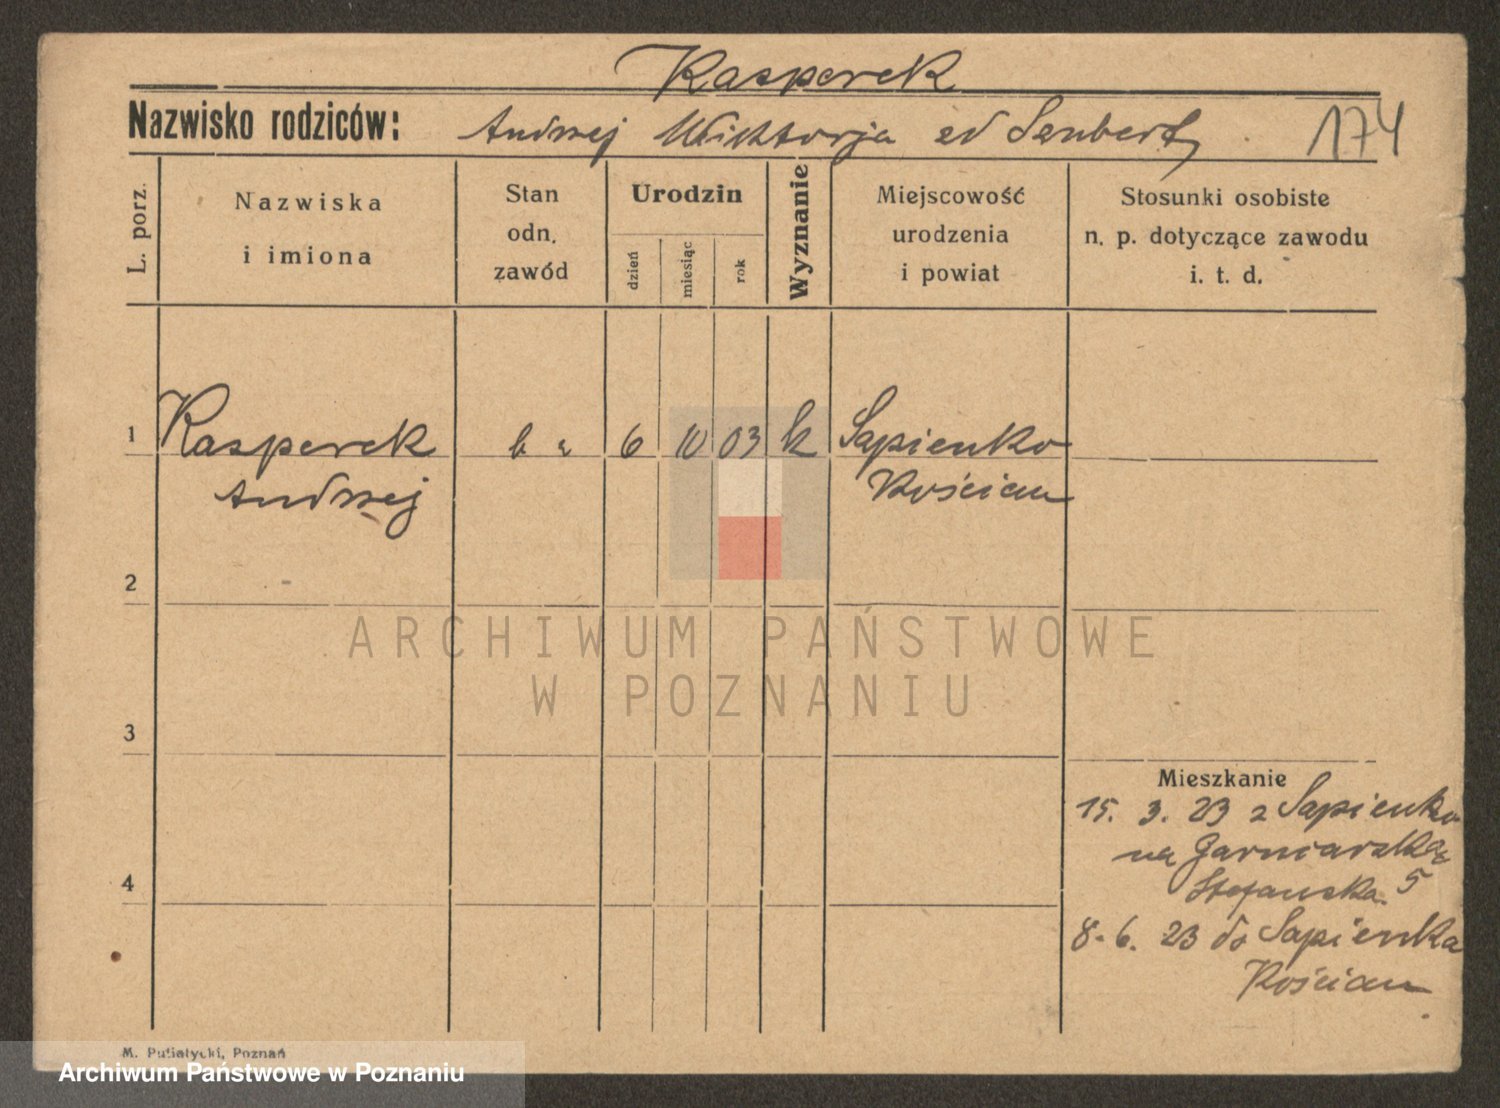 Kasperek
Nazwisko rodziców: Andrzej Wiktorja zd Szubert
174
L. porz.
Nazwiska
i imiona
Stan
odn.
zawód
Urodzin
dzień
miesiąc
rok
Wyznanie
Miejscowość
urodzenia
i powiat
Stosunki osobiste
n. p. dotyczące zawodu
i. t. d.
1 Kasperek 6 10 03 k Sapienko
Andrzej Kościan
2
3
4
Mieszkanie
15. 3. 23 z Sapienko
na Garniarska
Stefanska 5
8. 6. 23 do Sapienka
Kościan
M. Putiatycki, Poznań
ARCHIWUM PAŃSTWOWE
W POZNANIU
Archiwum Państwowe w Poznaniu